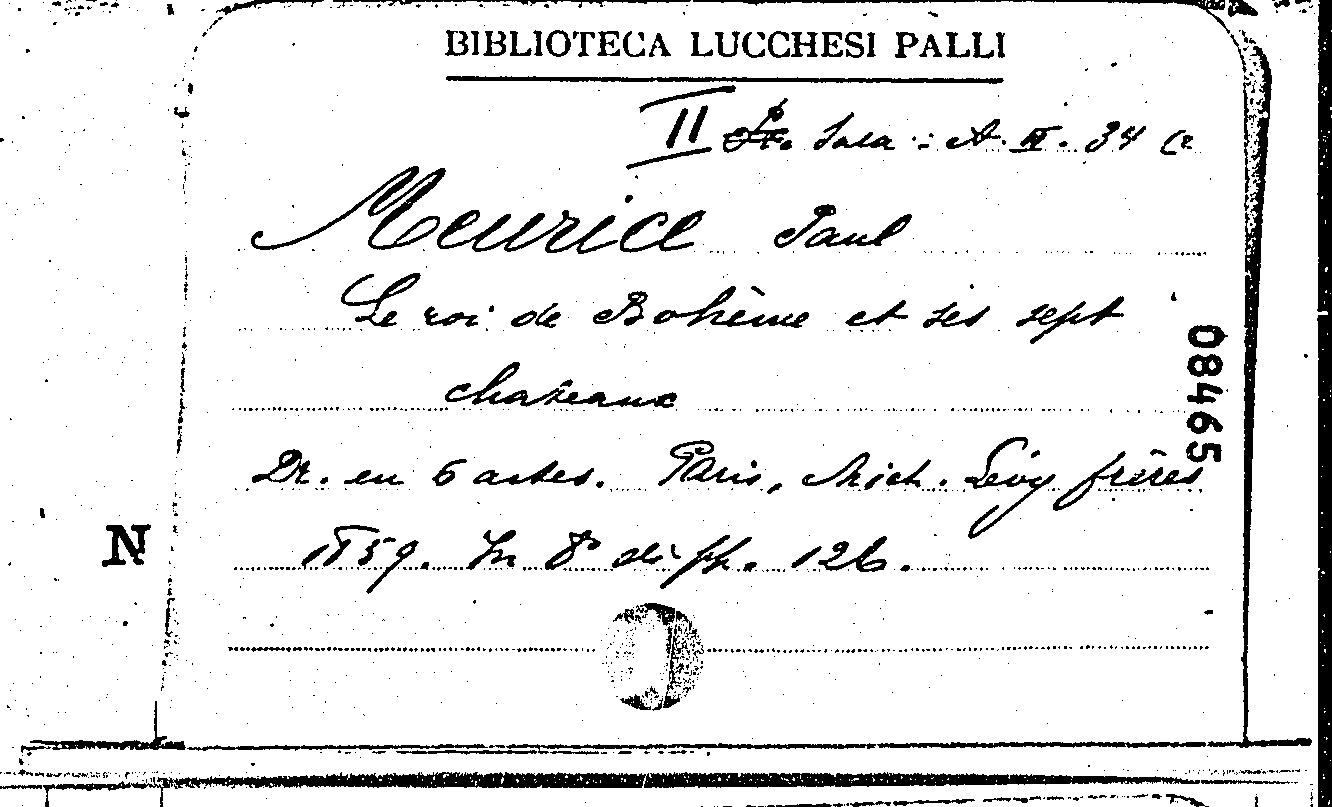 BIBLIOTECA LUCCHESI PALLI
II Sala : A. III. 34 (2
Meurice Paul
Le roi de Bohème et ses sept
chateaux
Dr. en 6 actes. Paris, Mich. Lévy frères
1859. In 8° di pp. 126.
08465
N